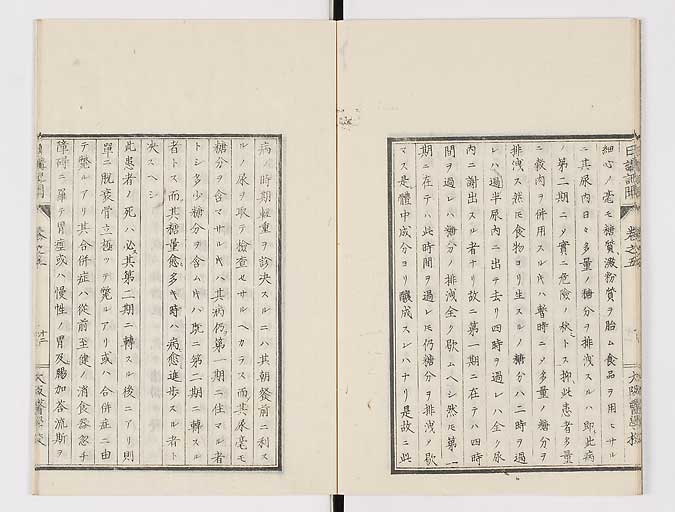 日講記聞
巻之五
大阪醫學校
細心ノ毫モ糖質澱粉質ヲ胎ム食品ヲ用ヒサル
ニ其尿内日々多量ノ糖分ヲ排洩スルハ即此病
ノ第二期ニ〆實ニ危險ノ秋トス抑此患者多量
ニ穀肉ヲ併用スル𪜈ハ暫時ニ〆多量ノ糖分ヲ
排洩ス然𪜈食物ヨリ生スルノ糖分ハ二時ヲ過
レハ過半尿内ニ出テ去リ四時ヲ過レハ全ク尿
内ニ謝出スル者ナリ故ニ第一期ニ在テハ四時
間ヲ過レハ糖分ノ排洩全ク歇ムヘシ然𪜈第二
期ニ在テハ此時間ヲ過レ𪜈仍糖分ヲ排洩ノ歇
マス是體中成分ヨリ釀成スレハナリ是故ニ此
病ノ時期輕重ヲ診决スルニハ其朝餐前ニ利ス
ルノ尿ヲ取テ檢查セサルヘカラス而其尿毫モ
糖分ヲ含マサル𪜈ハ其病仍第一期ニ住マル者
トシ多少糖分ヲ含ム𪜈ハ既ニ第二期ニ轉スル
者トス而其糖量愈多キ時ハ病愈進歩スル者ト
决スヘシ
此患者ノ死ハ必其第二期ニ轉スル後ニアリ則
單ニ脱衰骨立極ツテ斃ルアリ或ハ合併症ニ由
テ斃ルアリ其合併症ハ從前至健ノ消食器忽チ
障碍ニ羅テ胃痙或ハ慢性ノ胃及腸加答流斯ヲ
日講記聞
巻之五
十二
大阪醫學校